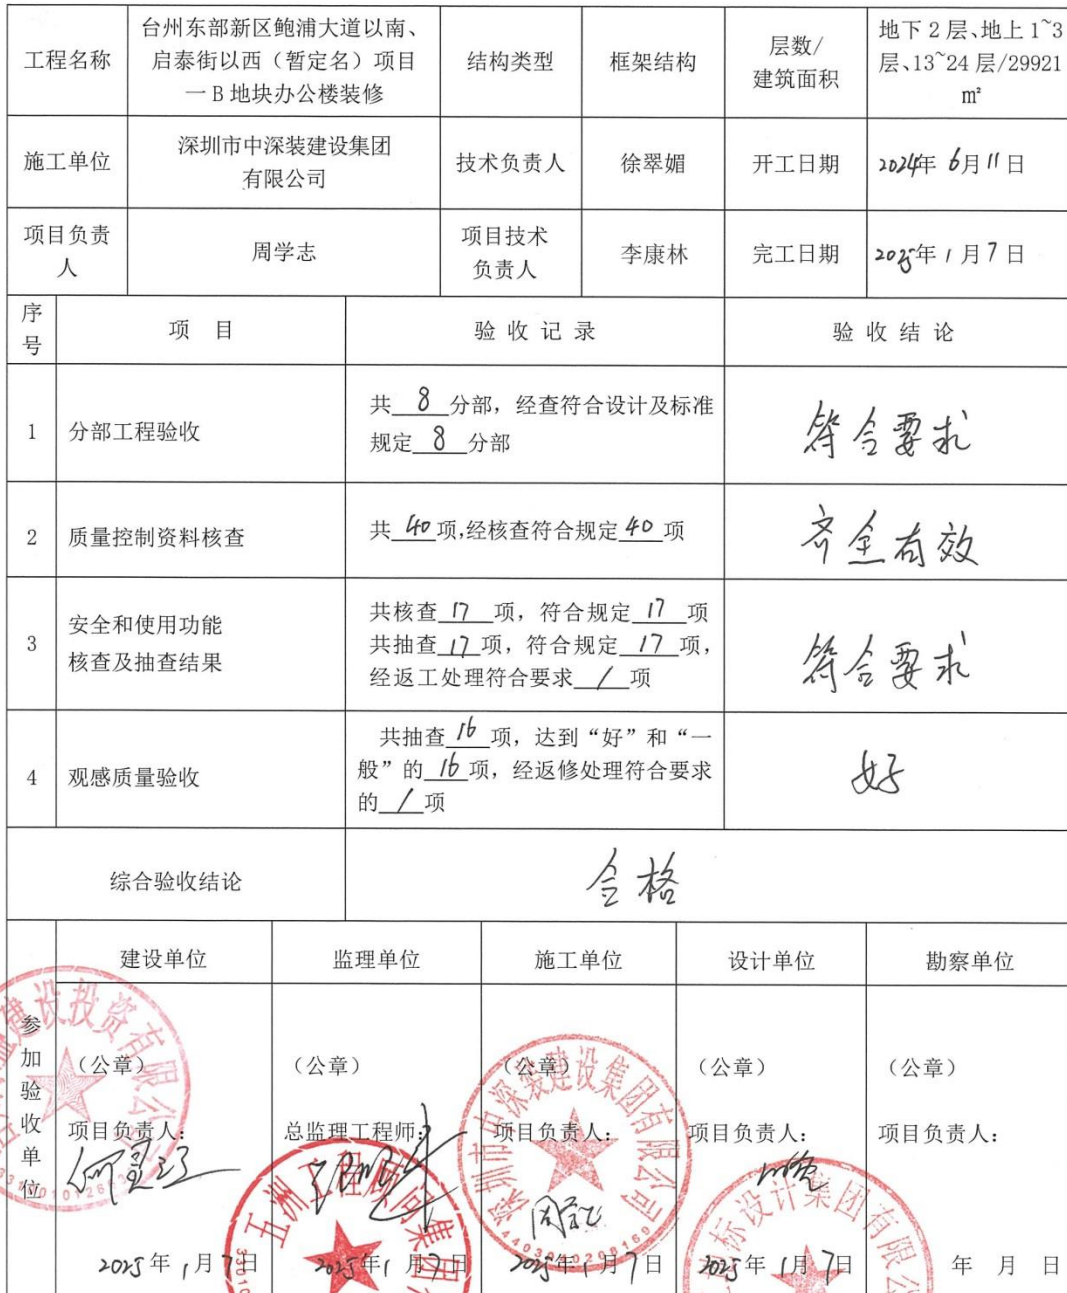 工程名称
台州东部新区鲍浦大道以南、
启泰街以西（暂定名）项目
一 B 地块办公楼装修
结构类型
框架结构
层数/
建筑面积
地下 2 层、地上 1~3
层、13~24 层/29921
m²
施工单位
深圳市中深装建设集团
有限公司
技术负责人
徐翠媚
开工日期
2024年 6月11日
项目负责
人
周学志
项目技术
负责人
李康林
完工日期
2025年 1月7日
序
号
项 目
验 收 记 录
验 收 结 论
1
分部工程验收
共 8 分部，经查符合设计及标准
规定 8 分部
符合要求
2
质量控制资料核查
共 40 项,经核查符合规定 40 项
齐全有效
3
安全和使用功能
核查及抽查结果
共核查 17 项，符合规定 17 项
共抽查 17 项，符合规定 17 项，
经返工处理符合要求 / 项
符合要求
4
观感质量验收
共抽查 16 项，达到“好”和“一
般”的 16 项，经返修处理符合要求
的 / 项
好
综合验收结论
合格
参加验收单位
建设单位
监理单位
施工单位
设计单位
勘察单位
（公章）
（公章）
（公章）
（公章）
（公章）
项目负责人：
总监理工程师：
项目负责人：
项目负责人：
项目负责人：
2025年 1月7日
2025年 1月7日
2025年 1月7日
2025年 1月7日
年 月 日
建设投资有限公
五洲工程顾问集团
深圳市中深装建设集团有限公司
标设计集团有限公